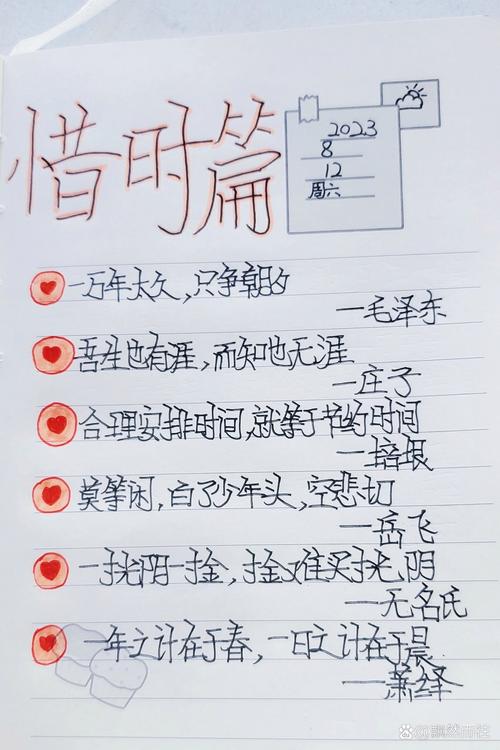 惜时篇
2023
8
12
周六
一万年太久,只争朝夕
—毛泽东
吾生也有涯,而知也无涯
—庄子
合理安排时间,就等于节约时间
—培根
莫等闲,白了少年头,空悲切
—岳飞
一寸光阴一寸金,寸金难买寸光阴
—无名氏
一年之计在于春,一日之计在于晨
—萧绎